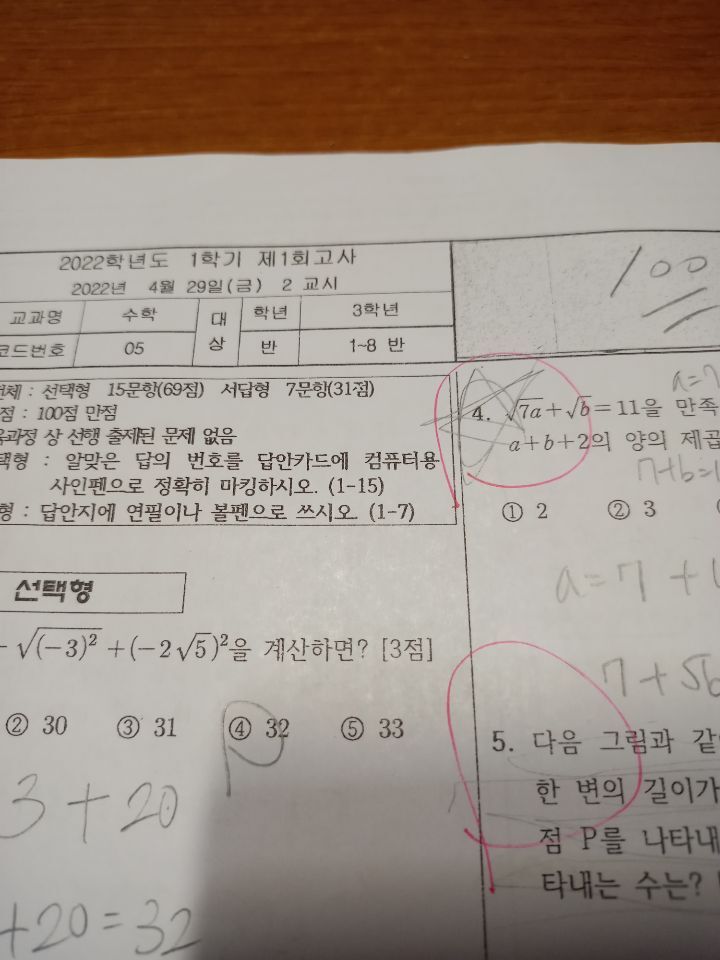 2022학년도 1학기 제1회고사
2022년 4월 29일(금) 2 교시
교과명 수학 대상 학년 3학년
코드번호 05 반 1~8 반
100
전체 : 선택형 15문항(69점) 서답형 7문항(31점)
점 : 100점 만점
육과정 상 선행 출제된 문제 없음
택형 : 알맞은 답의 번호를 답안카드에 컴퓨터용
사인펜으로 정확히 마킹하시오. (1-15)
형 : 답안지에 연필이나 볼펜으로 쓰시오. (1-7)
선택형
- √(-3)² + (-2√5)²을 계산하면? [3점]
② 30 ③ 31 ④ 32 ⑤ 33
3 + 20
+20=32
a=7
4. √7a + √b = 11을 만족
a+b+2의 양의 제곱
7+b=1
① 2 ② 3
a=7 +
7+
5. 다음 그림과 같
한 변의 길이가
점 P를 나타내
타내는 수는?